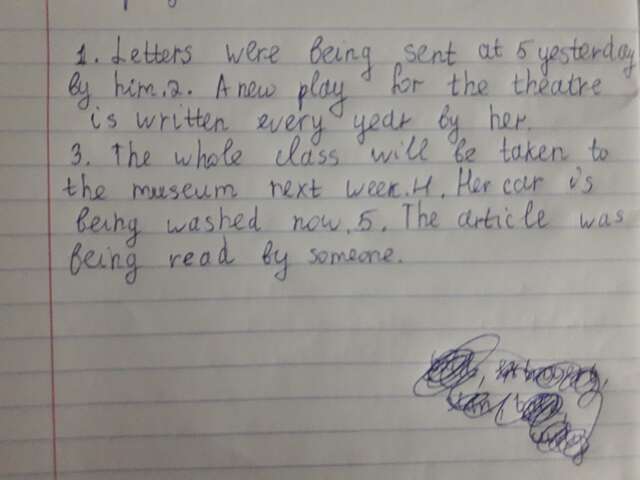 1. Letters were being sent at 5 yesterday
by him. 2. A new play for the theatre
is written every year by her.
3. The whole class will be taken to
the museum next week. 4. Her car is
being washed now. 5. The article was
being read by someone.